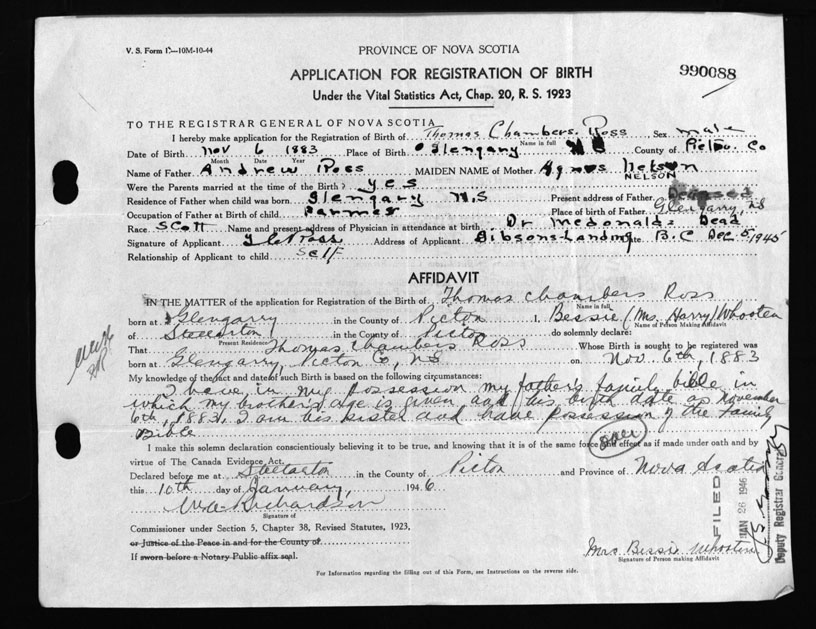 V. S. Form 1.—10M-10-44
PROVINCE OF NOVA SCOTIA
APPLICATION FOR REGISTRATION OF BIRTH
990088
Under the Vital Statistics Act, Chap. 20, R. S. 1923
TO THE REGISTRAR GENERAL OF NOVA SCOTIA
I hereby make application for the Registration of Birth of Thomas Chambers. Ross Sex male
Name in full
Date of Birth Nov 6 1883 Place of Birth Glengary N S County of Pictou. Co
Month Date Year
Name of Father Andrew Ross MAIDEN NAME of Mother Agnes Nelson
NELSON
Were the Parents married at the time of the Birth? yes
Residence of Father when child was born Glengary N.S Present address of Father Deceased
Occupation of Father at Birth of child Farmer Place of birth of Father Glengarry, NS
Race Scott Name and present address of Physician in attendance at birth Dr McDonald Dead
Signature of Applicant T C Ross Address of Applicant Gibsons Landing Date B.C Dec 5/1945
Relationship of Applicant to child Self
AFFIDAVIT
IN THE MATTER of the application for Registration of the Birth of Thomas Chambers Ross
Name in full
born at Glengarry in the County of Pictou I, Bessie (Mrs. Harry) Whooten
Name of Person Making Affidavit
of Stellarton in the County of Pictou do solemnly declare:
Present Residence
That Thomas Chambers Ross Whose Birth is sought to be registered was
born at Glengarry, Pictou Co, NS on Nov. 6th, 1883
My knowledge of the fact and date of such Birth is based on the following circumstances:
I have in my possession my father's family bible in
which my brother's age is given and his birth date as November
6th, 1883. I am his sister and have possession of the family
Bible
over
I make this solemn declaration conscientiously believing it to be true, and knowing that it is of the same force and effect as if made under oath and by
virtue of The Canada Evidence Act.
Declared before me at Stellarton in the County of Pictou and Province of Nova Scotia
this 10th day of January, 1946
Signature of
Commissioner under Section 5, Chapter 38, Revised Statutes, 1923,
or Justice of the Peace in and for the County of
If sworn before a Notary Public affix seal.
Mrs. Bessie Whooten
Signature of Person making Affidavit
For Information regarding the filling out of this Form, see Instructions on the reverse side.
FILED
JAN 26 1946
Deputy Registrar General